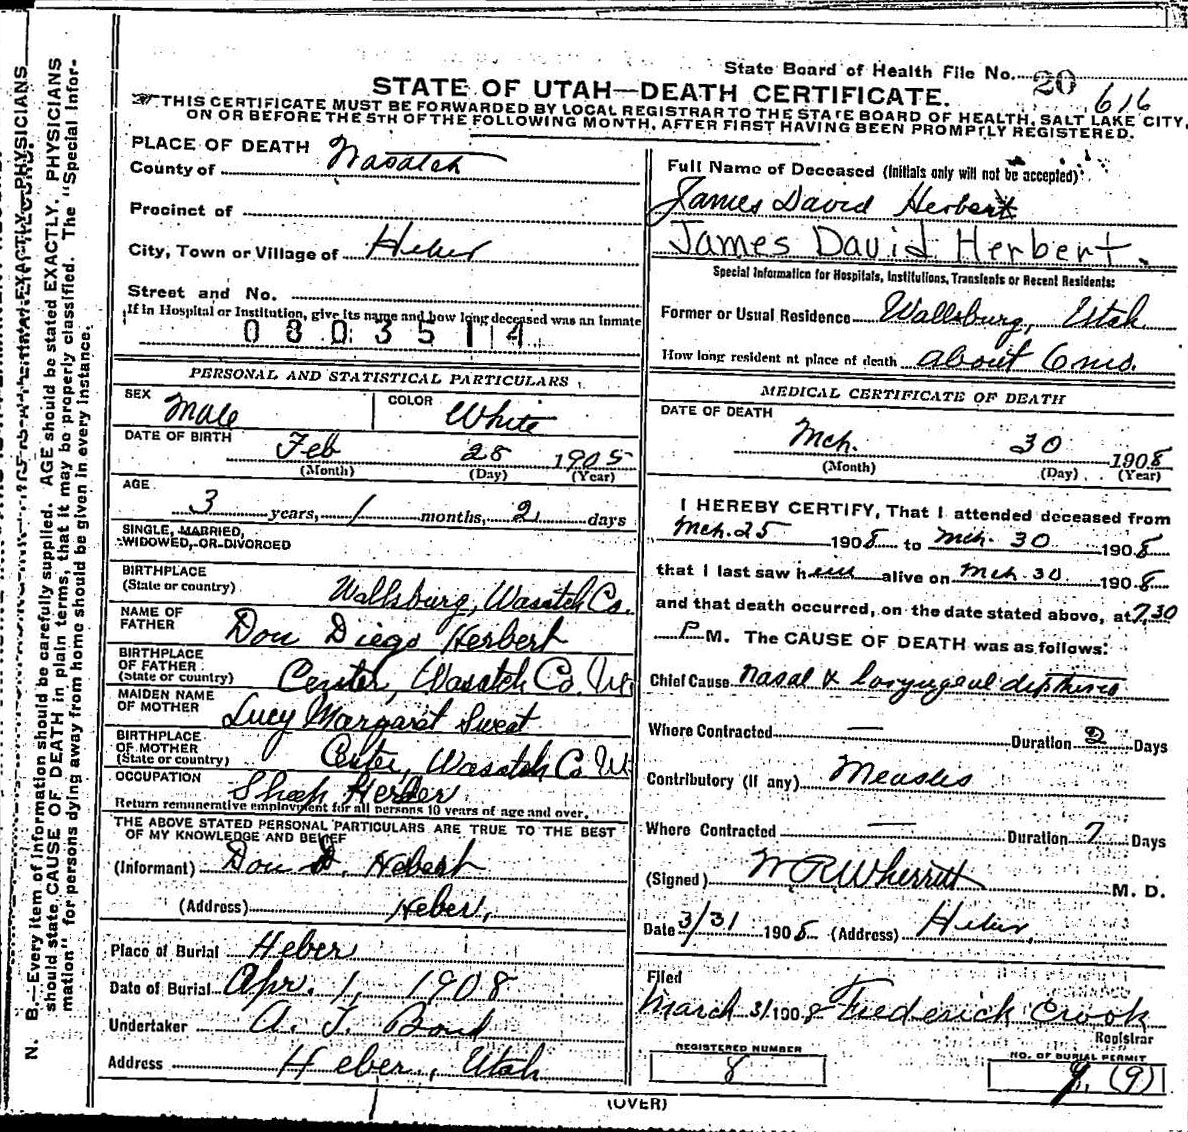 State Board of Health File No. 20 616
STATE OF UTAH—DEATH CERTIFICATE.
THIS CERTIFICATE MUST BE FORWARDED BY LOCAL REGISTRAR TO THE STATE BOARD OF HEALTH, SALT LAKE CITY,
ON OR BEFORE THE 5TH OF THE FOLLOWING MONTH, AFTER FIRST HAVING BEEN PROMPTLY REGISTERED.
PLACE OF DEATH
County of Wasatch
Precinct of
City, Town or Village of Heber
Street and No.
If in Hospital or Institution, give its name and how long deceased was an inmate
0803514
PERSONAL AND STATISTICAL PARTICULARS
SEX Male COLOR White
DATE OF BIRTH Feb 28 1905
(Month) (Day) (Year)
AGE
3 years, 1 months, 2 days
SINGLE, MARRIED,
WIDOWED, OR DIVORCED
BIRTHPLACE
(State or country) Wallsburg, Wasatch Co.
NAME OF
FATHER Don Diego Herbert
BIRTHPLACE
OF FATHER
(State or country) Center, Wasatch Co. Ut
MAIDEN NAME
OF MOTHER Lucy Margaret Sweat
BIRTHPLACE
OF MOTHER
(State or country) Center, Wasatch Co. Ut
OCCUPATION Sheep Herder
Return remunerative employment for all persons 10 years of age and over.
THE ABOVE STATED PERSONAL PARTICULARS ARE TRUE TO THE BEST
OF MY KNOWLEDGE AND BELIEF
(Informant) Don D. Hebert
(Address) Heber,
Place of Burial Heber
Date of Burial Apr. 1, 1908
Undertaker A. T. Bond
Address Heber, Utah
Full Name of Deceased (Initials only will not be accepted)
James David Herbert
James David Herbert.
Special Information for Hospitals, Institutions, Transients or Recent Residents:
Former or Usual Residence Wallsburg, Utah
How long resident at place of death about 6 mo.
MEDICAL CERTIFICATE OF DEATH
DATE OF DEATH
Mch. 30 1908
(Month) (Day) (Year)
I HEREBY CERTIFY, That I attended deceased from
Mch. 25 1908 to Mch. 30 1908
that I last saw him alive on Mch 30 1908
and that death occurred, on the date stated above, at 7.30
P M. The CAUSE OF DEATH was as follows:
Chief Cause Nasal & laryngeal diptheria
Where Contracted — Duration 2 Days
Contributory (if any) Measles
Where Contracted — Duration 7 Days
(Signed) W R Wherritt M. D.
Date 3/31 1908 (Address) Heber,
Filed
March 31 1908 Frederick Crook
Registrar
REGISTERED NUMBER
8
NO. OF BURIAL PERMIT
9. (9)
(OVER)
N. B.—Every item of information should be carefully supplied. AGE should be stated EXACTLY. PHYSICIANS
should state CAUSE OF DEATH in plain terms, that it may be properly classified. The "Special Infor-
mation" for persons dying away from home should be given in every instance.